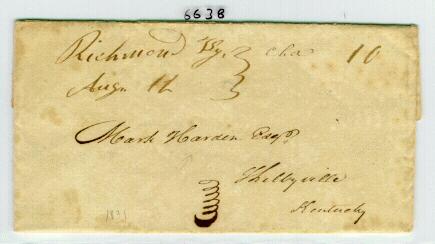 6638
Richmond Ky. } Cha 10
Augt 12 }
Mark Harden Esqr.
Shelbyville
Kentucky
1831